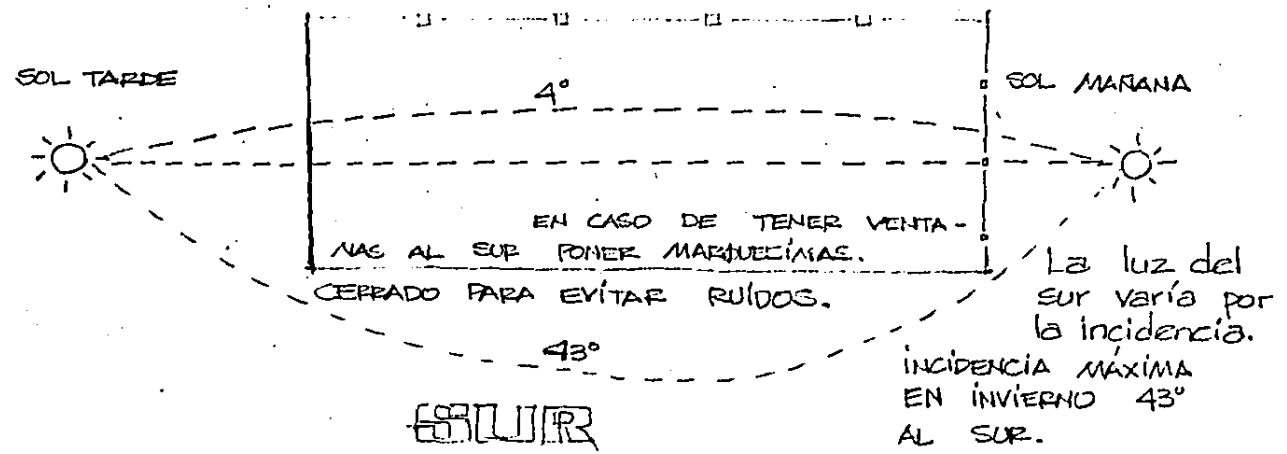 SOL TARDE
4°
SOL MAÑANA
EN CASO DE TENER VENTA-
NAS AL SUR PONER MARQUECÍNAS.
CERRADO PARA EVÍTAR RUÍDOS.
La luz del
sur varía por
la incidencia.
43°
INCIDENCIA MÁXIMA
EN INVIERNO 43°
AL SUR.
SUR